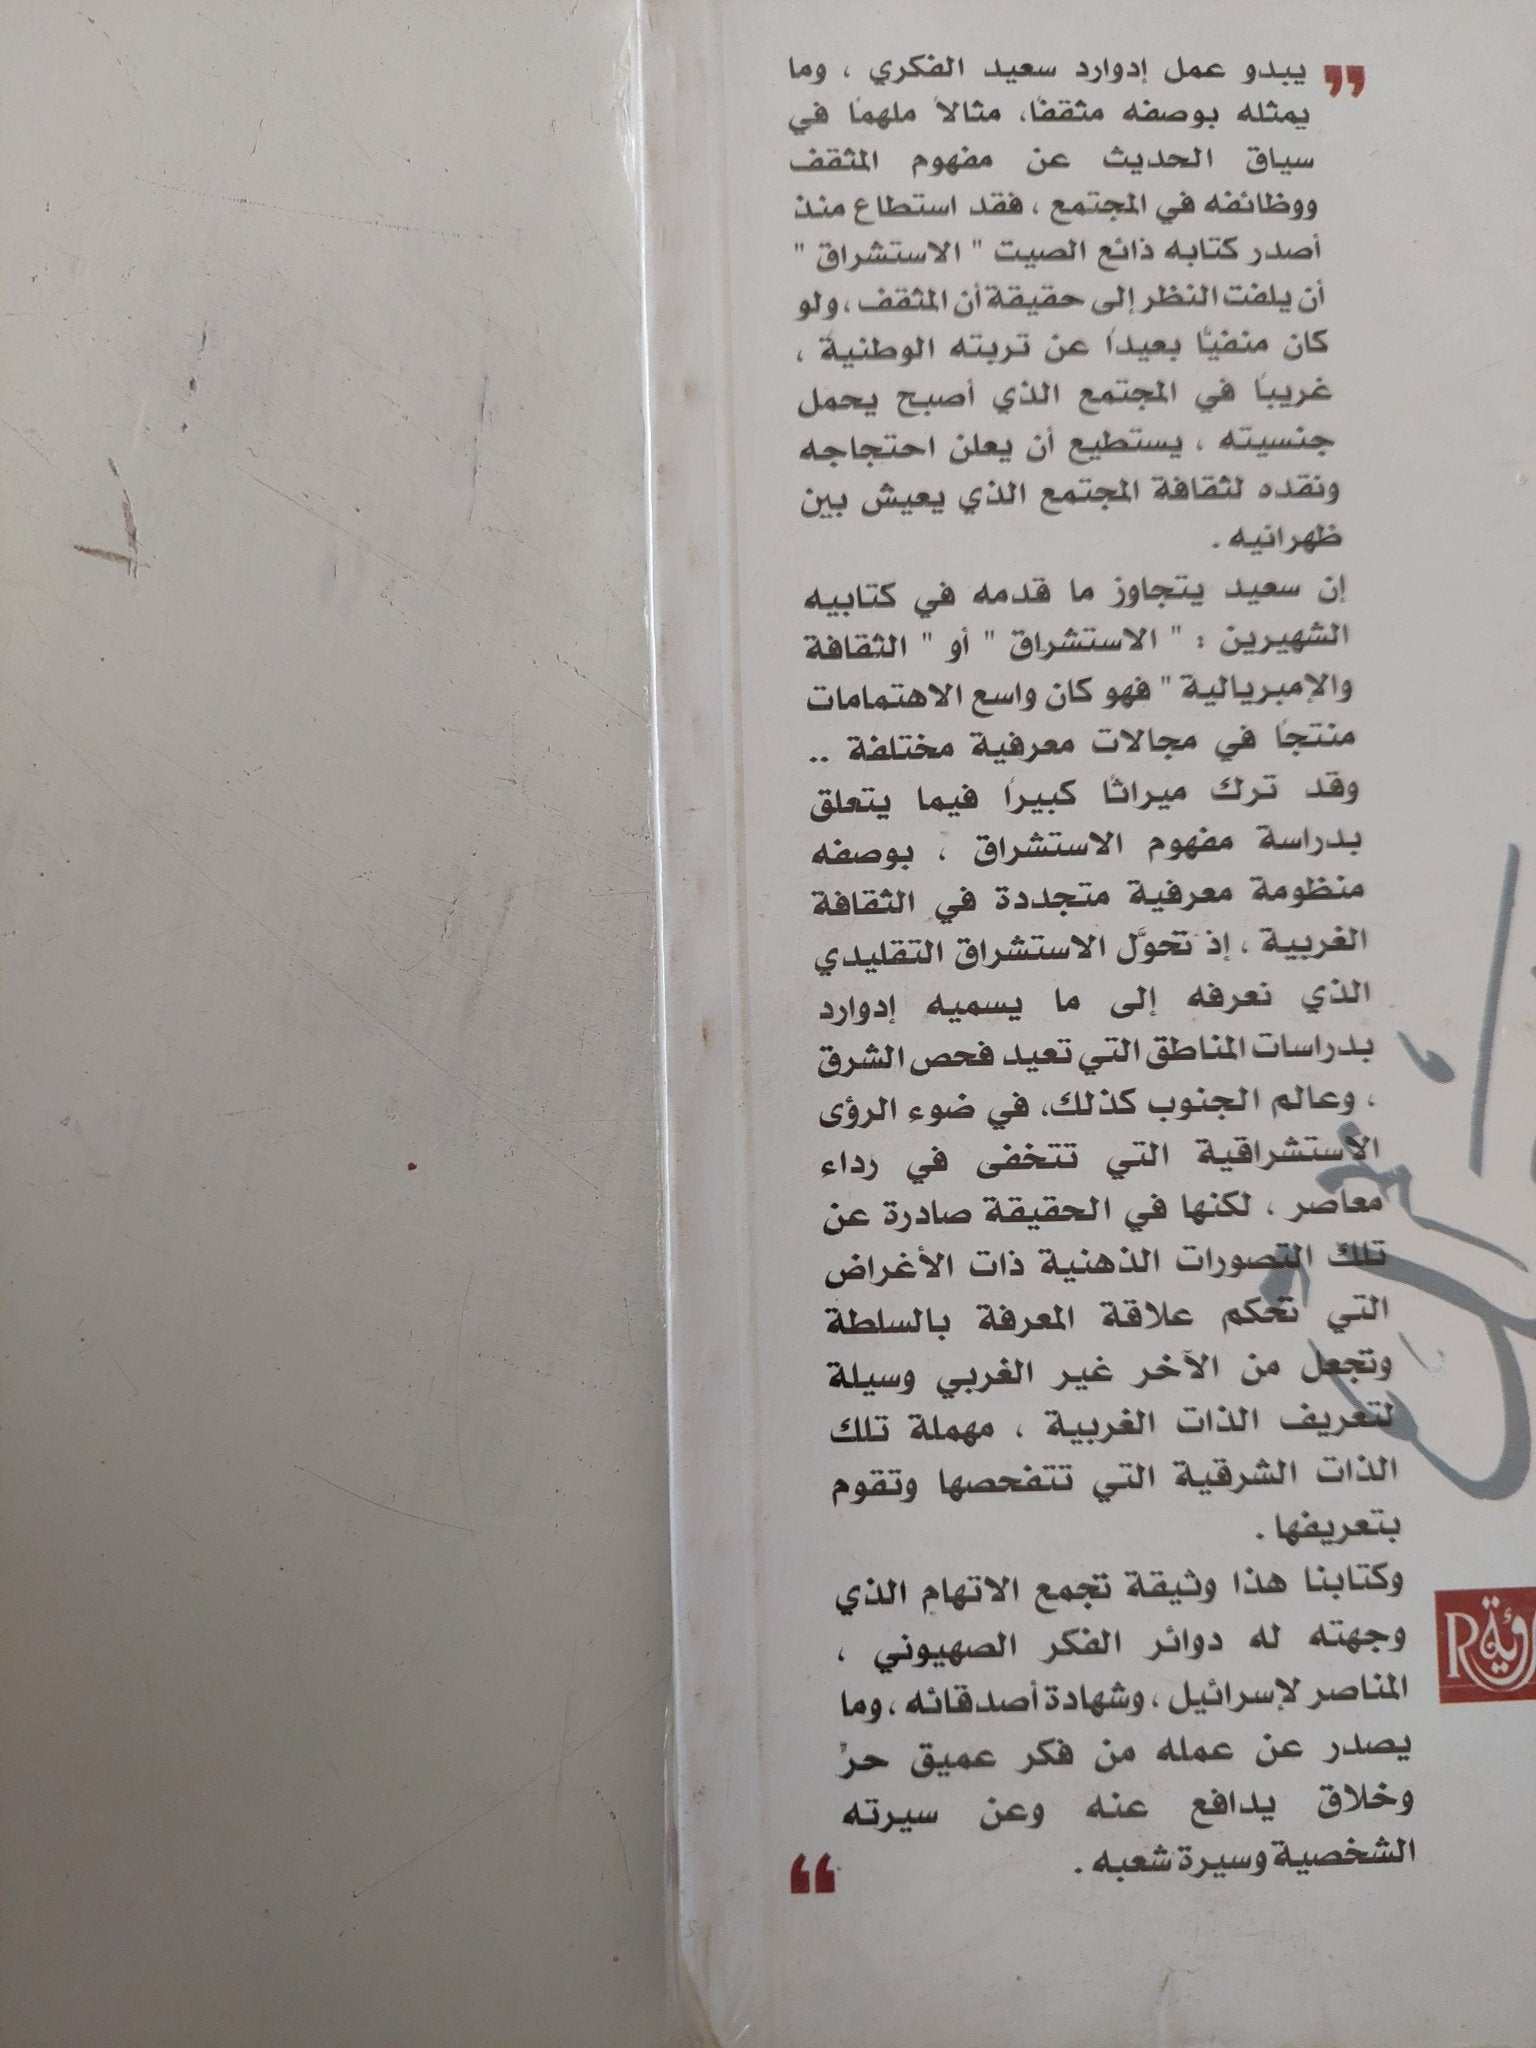 يبدو عمل إدوارد سعيد الفكري ، وما
يمثله بوصفه مثقفًا، مثالاً ملهمًا في
سياق الحديث عن مفهوم المثقف
ووظائفه في المجتمع ، فقد استطاع منذ
أصدر كتابه ذائع الصيت " الاستشراق "
أن يلفت النظر إلى حقيقة أن المثقف ، ولو
كان منفيًّا بعيدًا عن تربته الوطنية ،
غريبًا في المجتمع الذي أصبح يحمل
جنسيته ، يستطيع أن يعلن احتجاجه
ونقده لثقافة المجتمع الذي يعيش بين
ظهرانيه .
إن سعيد يتجاوز ما قدمه في كتابيه
الشهيرين : " الاستشراق " أو " الثقافة
والإمبريالية " فهو كان واسع الاهتمامات
منتجًا في مجالات معرفية مختلفة ..
وقد ترك ميراثًا كبيرًا فيما يتعلق
بدراسة مفهوم الاستشراق ، بوصفه
منظومة معرفية متجددة في الثقافة
الغربية ، إذ تحوَّل الاستشراق التقليدي
الذي نعرفه إلى ما يسميه إدوارد
بدراسات المناطق التي تعيد فحص الشرق
، وعالم الجنوب كذلك، في ضوء الرؤى
الاستشراقية التي تتخفى في رداء
معاصر ، لكنها في الحقيقة صادرة عن
تلك التصورات الذهنية ذات الأغراض
التي تحكم علاقة المعرفة بالسلطة
وتجعل من الآخر غير الغربي وسيلة
لتعريف الذات الغربية ، مهملة تلك
الذات الشرقية التي تتفحصها وتقوم
بتعريفها .
وكتابنا هذا وثيقة تجمع الاتهام الذي
وجهته له دوائر الفكر الصهيوني ،
المناصر لإسرائيل ، وشهادة أصدقائه ، وما
يصدر عن عمله من فكر عميق حرٍّ
وخلاق يدافع عنه وعن سيرته
الشخصية وسيرة شعبه .